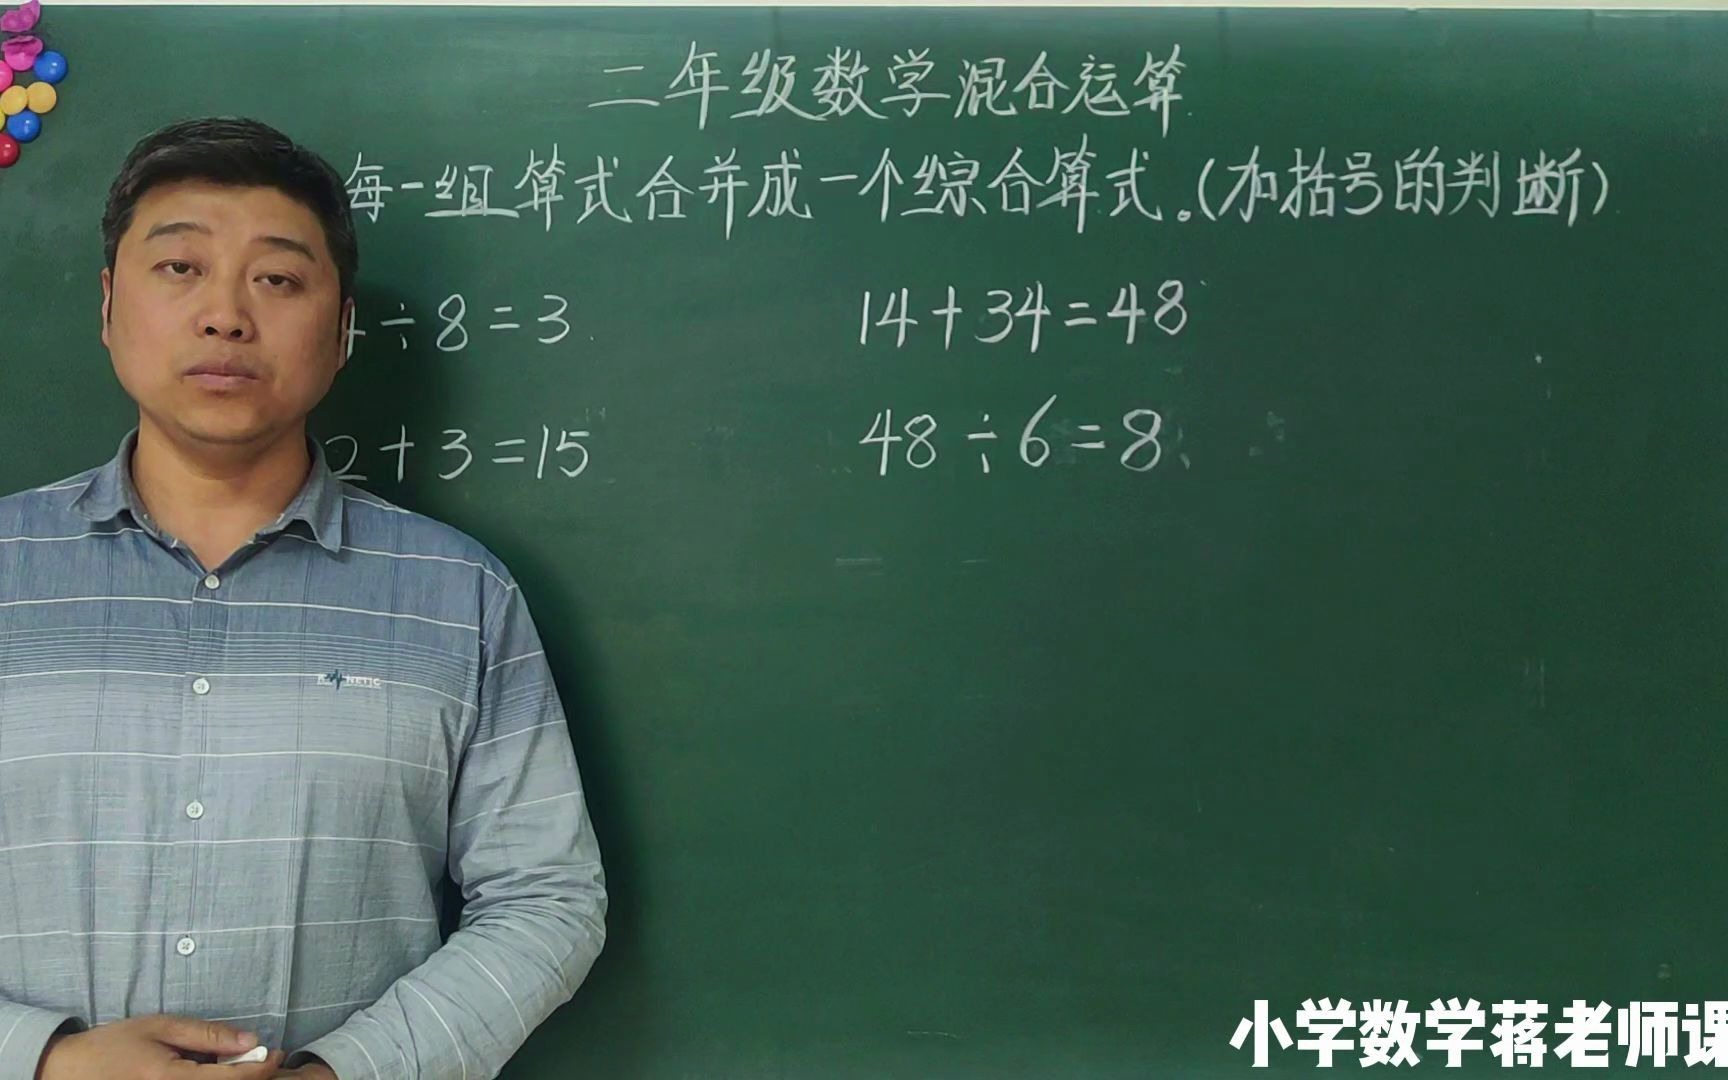 二年级数学混合运算
每一组算式合并成一个综合算式。(加括号的判断)
4÷8=3
14+34=48
2+3=15
48÷6=8
NETIC
小学数学蒋老师课